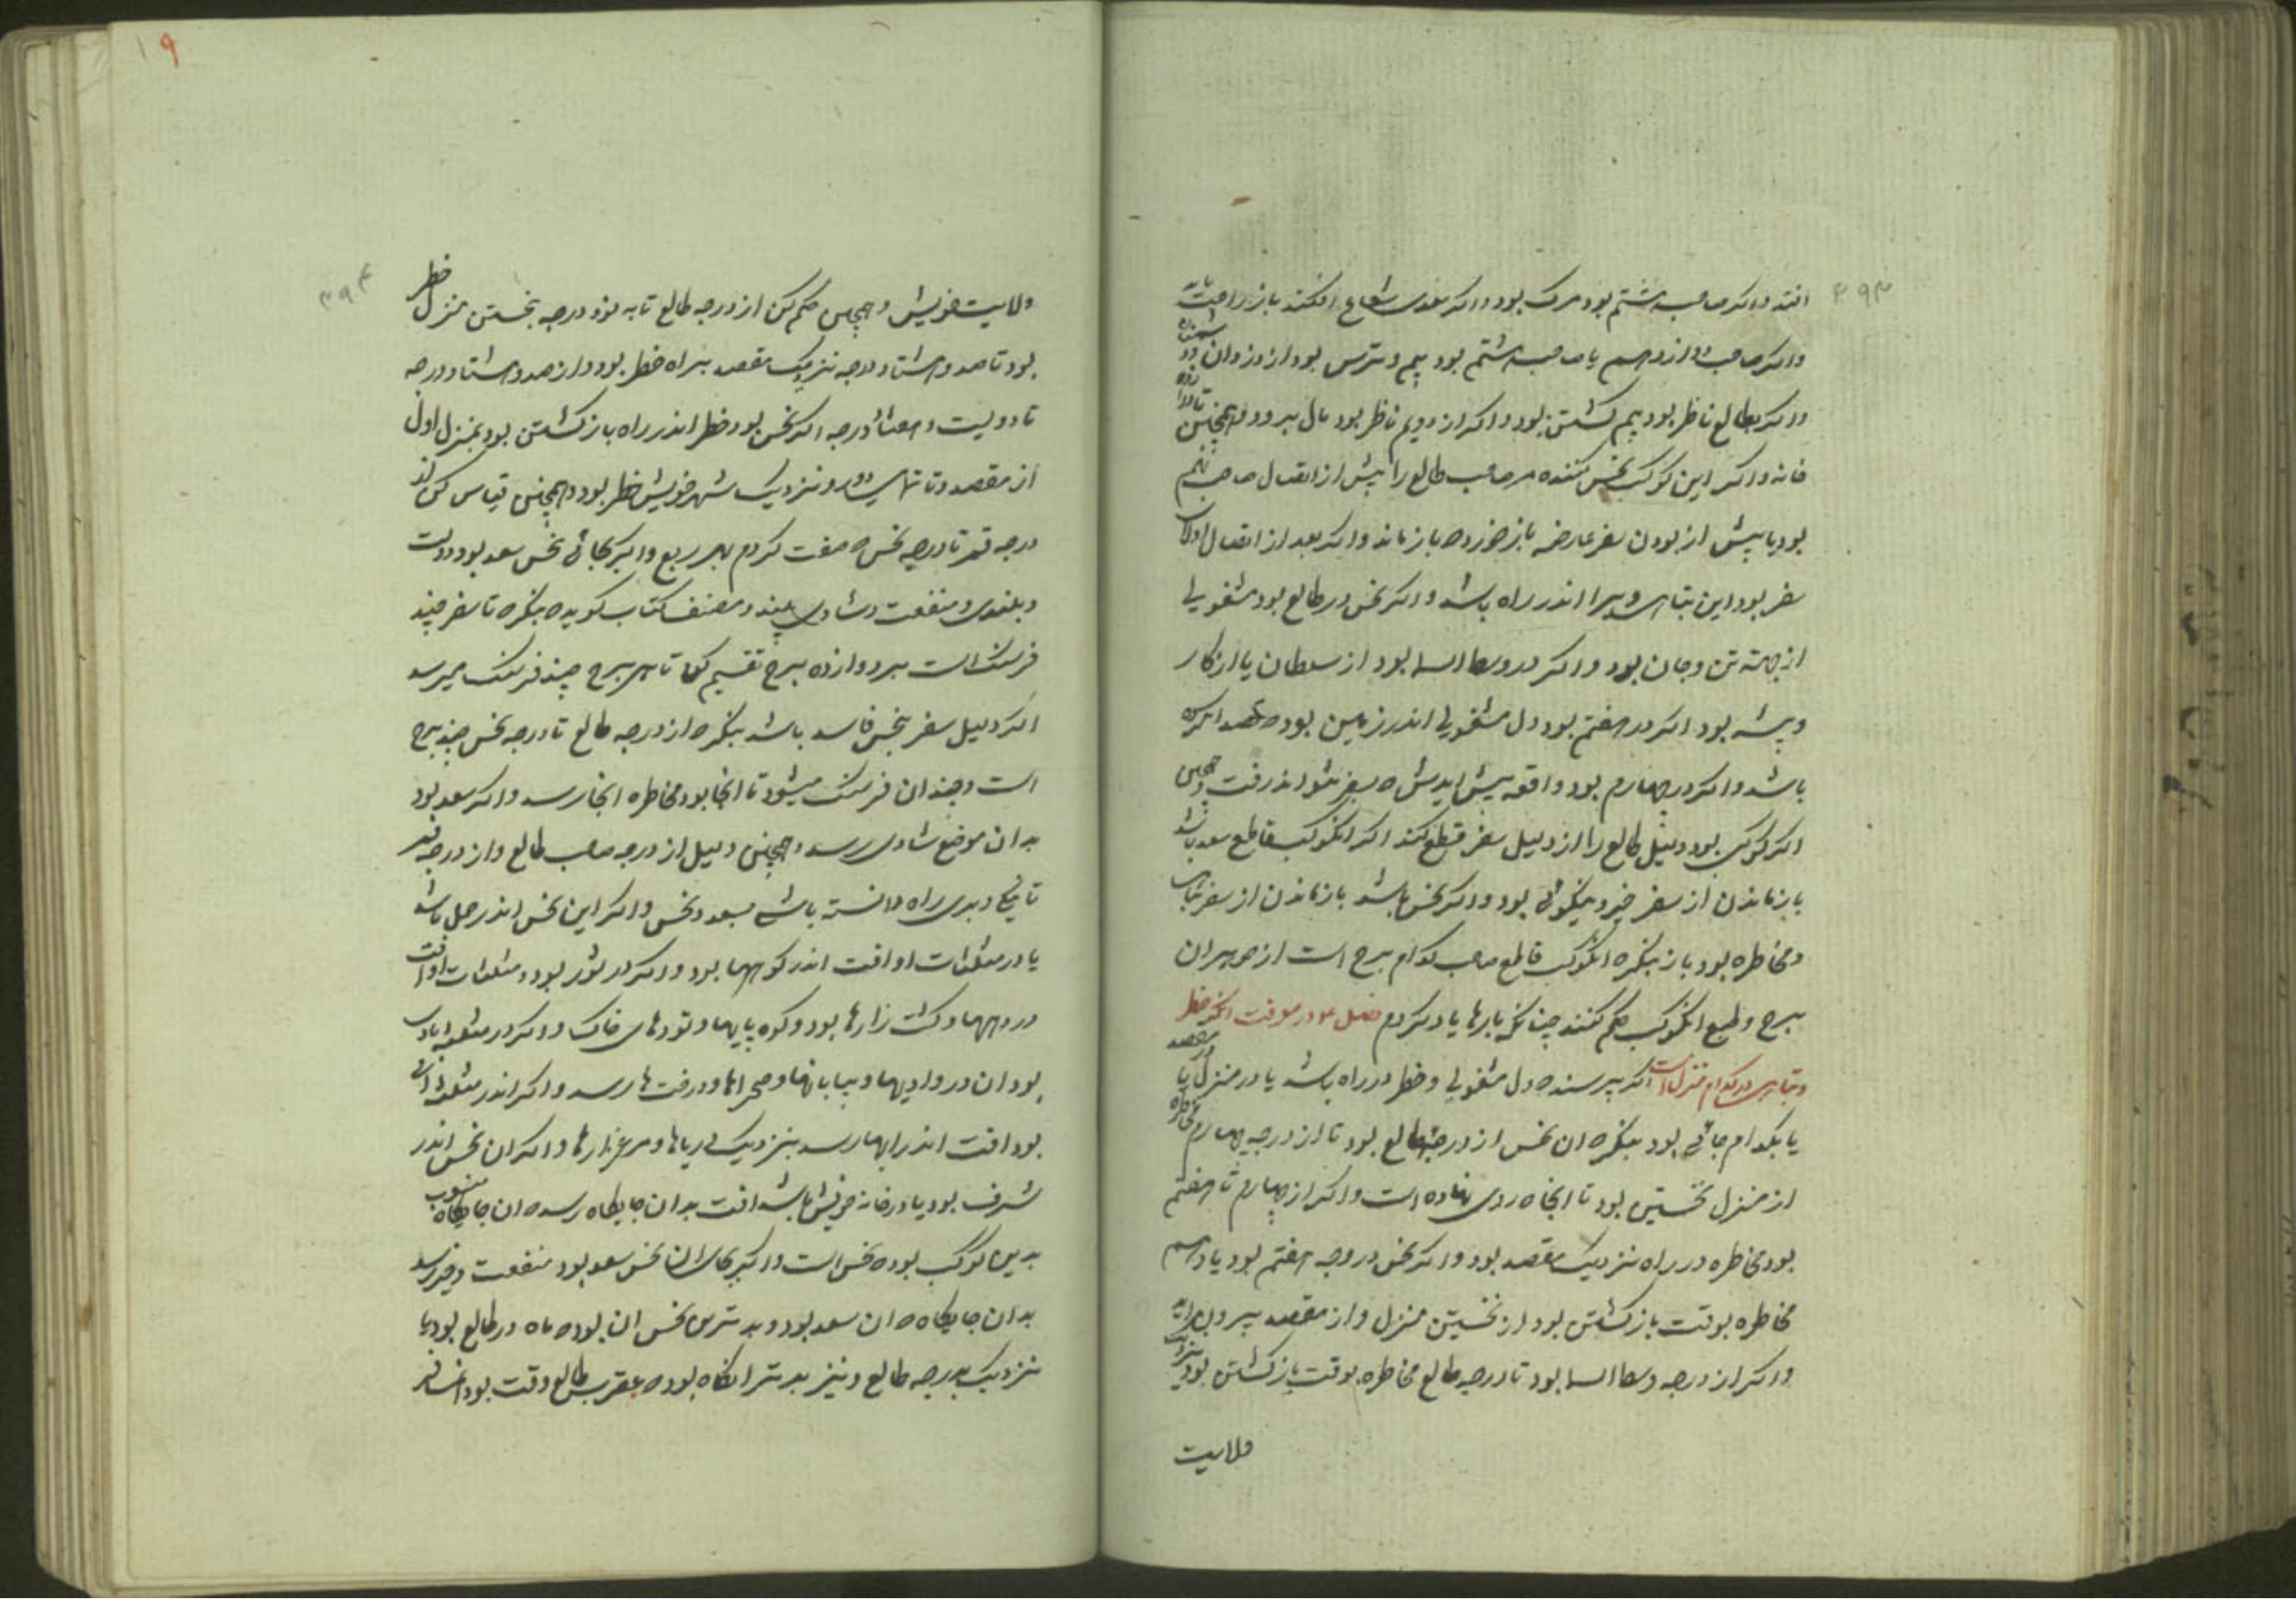 ۳۹۳
افتد و اگر صاحب هشتم بود مرگ بود و اگر سعدی شعاع افکند باز راحت یابد
و اگر صاحب دوازدهم یا صاحب هشتم بود بیم و ترس بود از دزدان
و اگر بطالع ناظر بود بیم کشتن بود و اگر از دویم ناظر بود مال ببرد و همچنین
خانه و اگر این کوکب نحس کننده مر صاحب طالع را پیش از اتصال صاحب نهم
بود یا پیش از بودن سفر عارضه باز خورد که باز ماند و اگر بعد از اتصال
سفر بود این تباهی ویرا اندر راه باشد و اگر نحس در طالع بود مشغولی
از جهة تن و جان بود و اگر در وسط السما بود از سلطان یا از کار
و پیشه بود اگر در هفتم بود دل مشغولی اندر زمین بود که قصد
باشد و اگر در چهارم بود واقعه پیش ایدش که بسفر نتواند رفت و همچنین
اگر کوکبی بود دلیل طالع را از دلیل سفر قطع کند اگر انکوکب قاطع سعد باشد
باز ماندن از سفر خیر و نیکوئی بود و اگر نحس باشد باز ماندن از سفر تباهی
و مخاطره بود باز بنگر که انکوکب قاطع صاحب کدام برج است از جوهر ان
برج و طبع انکوکب حکم کنند چنانکه بارها یاد کردم فصل در معرفت انکه خطر
و تباهی در کدام منزل است اگر پرسند که دل مشغولی و خطر در راه باشد یا در منزل یا در مقصد
یا بکدام جائی بود بنگر که ان نحس از درجه طالع بود تا از درجه چهارم مخاطره
از منزل نخستین بود تا انجا که روی نهاده است و اگر از چهارم تا هفتم
بود مخاطره در راه نزدیک مقصد بود و اگر نحس در درجه هفتم بود یا دهم
مخاطره بوقت باز کشتن بود از نخستین منزل و از مقصد بیرون اید
و اگر از درجه وسط السما بود تا درجه طالع مخاطره بوقت باز کشتن بود نزدیک
ولایت
۱۹
۳۹۴
ولایت خویش و همچنین حکم کن از درجه طالع تا به نود درجه نخستن منزل خطر
بود تا صد و هشتاد درجه نزدیک مقصد براه خطر بود و از صد و هشتاد درجه
تا دویست و هفتاد درجه اگر نحس بود خطر اندر راه باز کشتن بود بمنزل اول
از مقصد و تا نزدیک شهر خویش خطر بود و همچنین قیاس کن از
درجه قمر تا درجه نحس که صفت کردم بهر ربع و اگر بجائی نحس سعد بود دولت
و بلندی و منفعت و شادی بیند و مصنف کتاب کوید که بنگر که تا سفر چند
فرسنگ است بر دوازده برج تقسیم کن تا هر برج چند فرسنگ میرسد
اگر دلیل سفر بنحس فاسد باشد بنگر که از درجه طالع تا درجه نحس چند برج
است و چندان فرسنگ میشود تا انجا بود مخاطره انجا رسد و اگر سعد بود
بدان موضع شادی رسد و همچنین دلیل از درجه صاحب طالع و از درجه قمر
تا نیکی و بدی راه دانسته باشی بسعد و نحس و اگر این نحس اندر حمل باشد
یا در مثلثات او افت اندر کوهها بود و اگر در ثور بود و مثلثات او افت
در دهها و کشت زارها بود و کوه پایها و تودهای خاک و اگر در مثلثه بادی
بود ان در وادیها و بیابانها و صحراها و درخت ها رسد و اگر اندر مثلثه ابی
بود افت اندر ابها رسد بنزدیک دریاها و مرغزارها و اگر ان نحس اندر
شرف بود یا در خانه خویش باشد افت بدان جایگاه رسد که ان جایگاه منسوب
بدین کوکب بود که نحس است و اگر بجای ان نحس سعد بود منفعت و خیر رسد
بدان جایگاه که ان سعد بود و بدترین نحس ان بود که ماه در طالع بود یا
نزدیک بدرجه طالع و نیز بدتر انگاه بود که عقرب طالع وقت بود